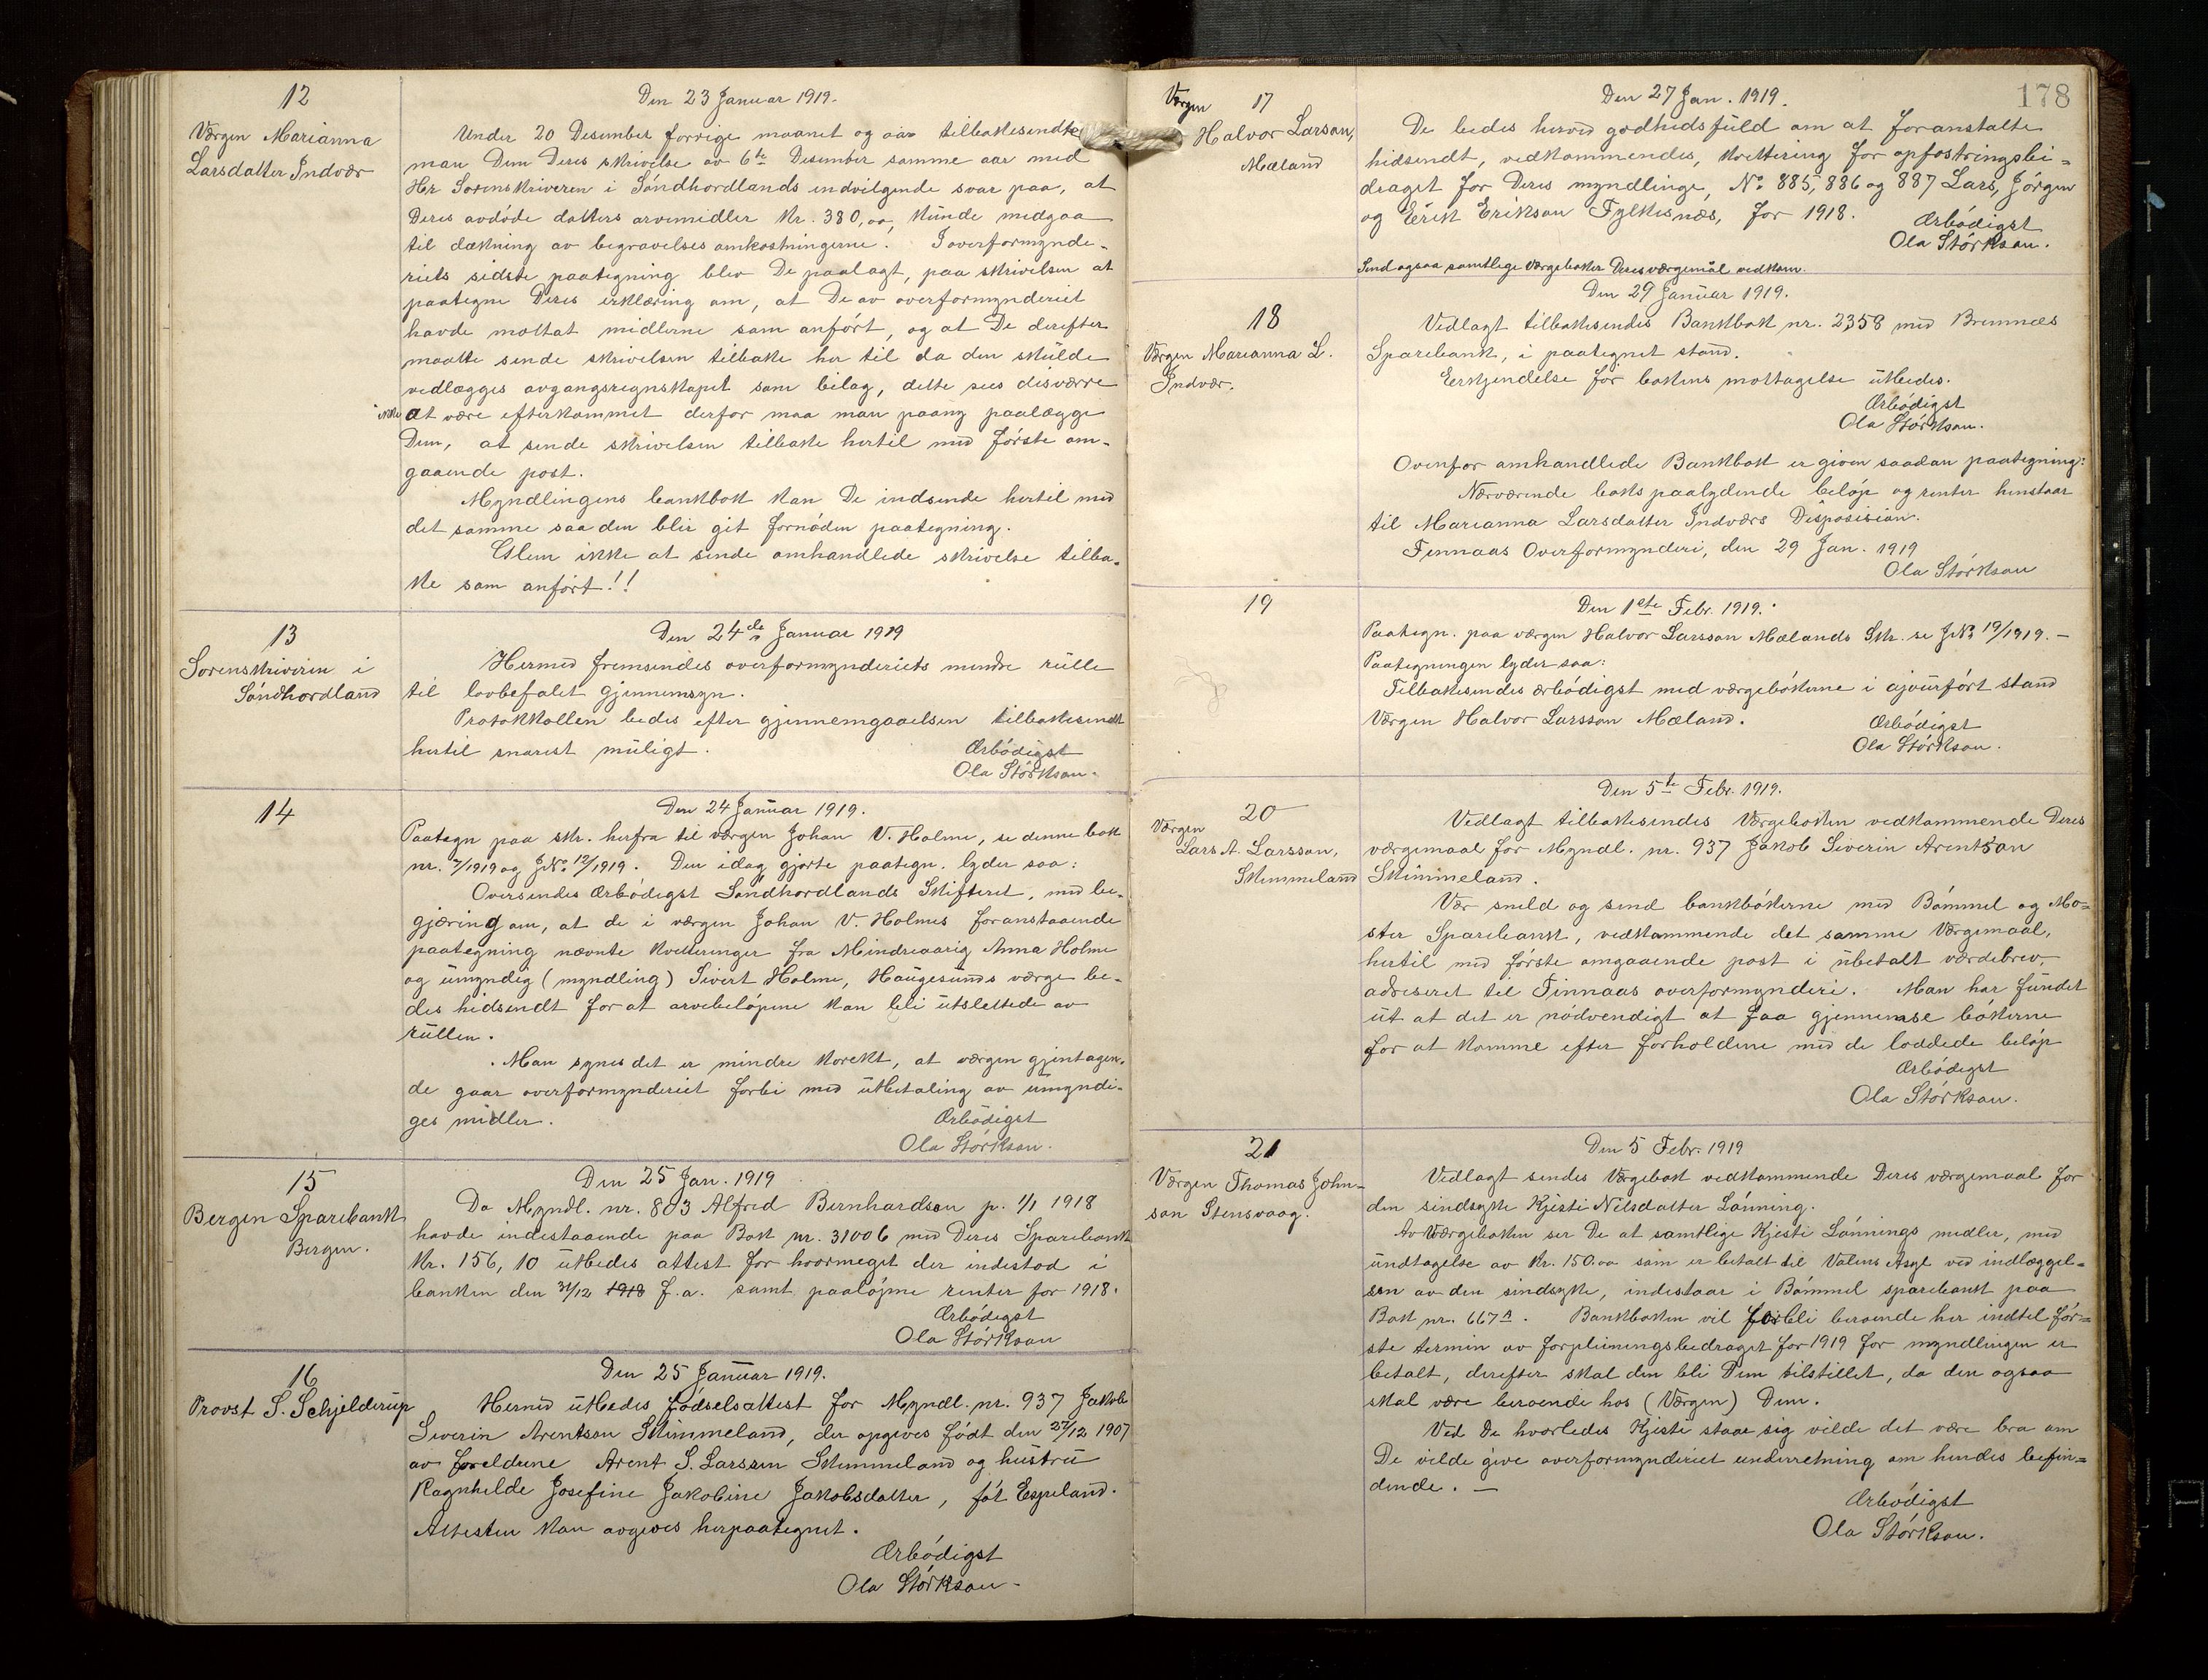 12
Værgen Marianna
Larsdatter Indvær
Den 23 Januar 1919.
Under 20 Desember forrige maanet og aar tilbakesendte
man Dem Deres skrivelse av 6te Desember samme aar med
Hr Sorenskriveren i Söndhordlands indvilgende svar paa, at
Deres avdöde datters arvemidler Kr. 380,00, kunde medgaa
til dækning av begravelsesomkostningerne. I overformynde-
riets sidste paategning blev De paalagt, paa skrivelsen at
paategne Deres erklæring om, at De av overformynderiet
havde mottat midlerne som anfört, og at De derefter
maatte sende skrivelsen tilbake her til da den skulde
vedlægges avgangsregnskapet som bilag, dette sees disværre
ikke at være efterkommet derfor maa man paany paalægge
Dem, at sende skrivelsen tilbake hertil med förste om-
gaaende post.
Myndlingens bankbok kan De indsende hertil med
det samme saa den blir git fornöden paategning.
Glem ikke at sende omhandlede skrivelse tilba-
ke som anfört!!
13
Sorenskriveren i
Söndhordland
Den 24de Januar 1919
Hermed fremsendes overformynderiets mindre rulle
til lovbefalet gjennemsyn.
Protokkollen bedes efter gjennemgaaelsen tilbakesendt
hertil snarest muligt.
Ærbödigst
Ola Störkson.
14
Den 24 Januar 1919.
Paategn paa skr. herfra til værgen Johan V. Holme, se denne bok
nr. 7/1919 og JNo. 12/1919. Den idag gjorte paategn. lyder saa:
Oversendes ærbödigst Söndhordlands Skifteret, med be-
gjæring om, at de i værgen Johan V. Holmes foranstaaende
paategning nævnte kvitteringer fra Mindreaarig Anna Holme
og umyndig (myndling) Sivert Holme, Haugesunds værge be-
des hidsendt for at arvebelöpene kan bli utslettede av
rullen.
Man synes det er mindre korekt, at værgen gjentagen-
de gaar overformynderiet forbi med utbetaling av umyndi-
ges midler.
Ærbödigst
Ola Störkson.
15
Bergen Sparebank
Bergen.
Den 25 Jan. 1919
Da Myndl. nr. 803 Alfred Bernhardsen p. 1/1 1918
havde indestaaende paa Bok nr. 31006 med Deres Sparebank
Kr. 156,10 utbedes attest for hvormeget der indestod i
banken den 31/12 1918 f.a. samt paalöpne renter for 1918.
Ærbödigst
Ola Störkson
16
Provst S. Schjelderup
Den 25 Januar 1919.
Hermed utbedes födselsattest for Myndl. nr. 937 Jakob
Severin Arentson Skimmeland, der opgives födt den 27/12 1907
av foreldrene Arent S. Larssen Skimmeland og hustru
Ragnhilde Josefine Jakobine Jakobsdatter, föt Espeland.
Attesten kan avgives herpaategnet.
Ærbödigst
Ola Störkson.
178
17
Værgen
Halvor Larson,
Mæland
Den 27 Jan. 1919.
De bedes herved godhedsfuld om at foranstalte
hidsendt, vedkommendes, kvittering for opfostringsbi-
draget for Deres myndlinge, No. 885, 886 og 887 Lars, Jörgen
og Erik Erikson Fylkesnæs, for 1918.
Ærbödigst
Ola Störkson.
Send ogsaa samtlige værgeböker Deres værgemål vedkom.
18
Værgen Marianna L.
Indvær.
Den 29 Januar 1919.
Vedlagt tilbakesendes Bankbok nr. 2358 med Bremnes
Sparebank, i paategnet stand.
Erkjendelse for bokens mottagelse utbedes.
Ærbödigst
Ola Störkson.
Ovenfor omhandlede Bankbok er given saadan paategning:
Nærværende boks paalydende belöp og renter henstaar
til Marianna Larsdatter Indværs Desposision.
Finnaas Overformynderi, den 29 Jan. 1919
Ola Störkson
19
Den 1ste Febr. 1919.
Paategn. paa værgen Halvor Larsson Mælands Skr. se JNo 19/1919. —
Paategningen lyder saa:
Tilbakesendes ærbödigst med værgebökerne i ajourfört stand
Værgen Halvor Larsson Mæland.
Ærbödigst
Ola Störkson.
20
Værgen
Lars A. Larsson,
Skimmeland
Den 5te Febr. 1919.
Vedlagt tilbakesendes Værgeboken vedkommende Deres
værgemaal for Myndl. nr. 937 Jakob Siverin Arentson
Skimmeland.
Vær sneld og send bankbökerne med Bömmel og Mo-
ster Sparebank, vedkommende det samme Værgemaal,
hertil med förste omgaaende post i ubetalt værdebrev,
adreseret til Finnaas overformynderi. Man har fundet
ut at det er nödvendigt at faa gjennemse bökerne
for at komme efter forholdene med de loddede belöp
Ærbödigst
Ola Störkson.
21
Værgen Thomas John-
son Stensvaag.
Den 5 Febr. 1919
Vedlagt sendes Værgebok vedkommende Deres værgemaal for
den sindsyke Kjersti Nilsdatter Lönning.
Av Værgeboken ser De at samtlige Kjesti Lönnings midler, med
undtagelse av Kr. 150.00 som er betalt til Valens Asyl ved indlæggel-
sen av den sindsyke, indestaar i Bömmel sparebank paa
Bok nr. 667A. Bankboken vil forbli beroende her indtil för-
ste termin av forpleiningsbedraget for 1919 for myndlingen er
betalt, derefter skal den bli Dem tilstillet, da den ogsaa
skal være beroende hos (Værgen) Dem.
Ved De hvorledes Kjesti staar sig vilde det være bra om
De vilde give overformynderiet underretning om hendes befin-
dende. —
Ærbödigst
Ola Störkson.